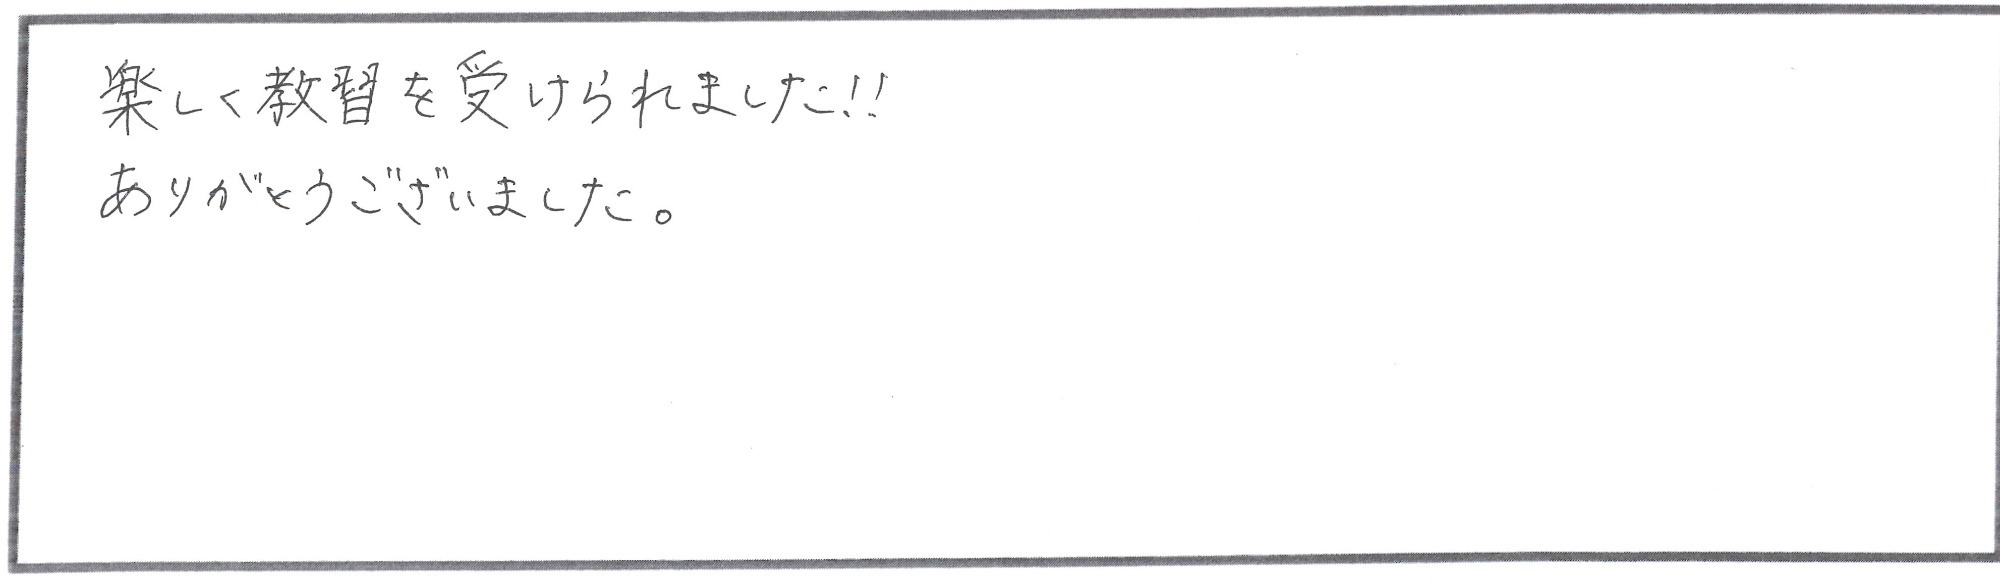 楽しく教習を受けられました!!
ありがとうございました。